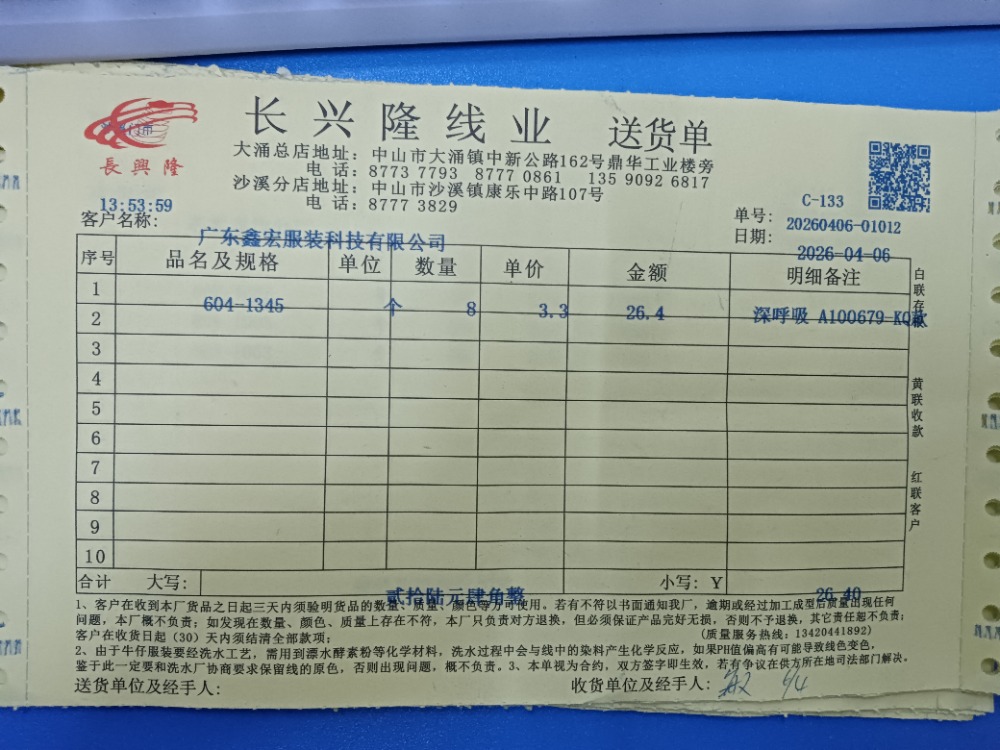 长兴隆线业 送货单
長興隆
大涌总店地址：中山市大涌镇中新公路162号鼎华工业楼旁
电 话：8773 7793 8770 0861 135 9092 6817
沙溪分店地址：中山市沙溪镇康乐中路107号
电 话：8777 3829
13:53:59
C-133
客户名称：广东鑫宏服装科技有限公司
单号：20260406-01012
日期：2026-04-06
序号 品名及规格 单位 数量 单价 金额 明细备注
1 604-1345 个 8 3.3 26.4 深呼吸 A100679-KQ款
2
3
4
5
6
7
8
9
10
合计 大写：贰拾陆元肆角整 小写：Y 26.40
白联存根
黄联收款
红联客户
1、客户在收到本厂货品之日起三天内须验明货品的数量、质量、颜色等方可使用。若有不符以书面通知我厂，逾期或经过加工成型后质量出现任何
问题，本厂概不负责；如发现在数量、颜色、质量上存在不符，本厂只负责对方退换，但必须保证产品完好无损，否则不予退换，其它责任恕不负责；
客户在收货日起（30）天内须结清全部款项； (质量服务热线：13420441892)
2、由于牛仔服装要经洗水工艺，需用到漂水酵素粉等化学材料，洗水过程中会与线中的染料产生化学反应，如果PH值偏高有可能导致线色变色，
鉴于此一定要和洗水厂协商要求保留线的原色，否则出现问题，概不负责。3、本单视为合约，双方签字即生效，若有争议在供方所在地司法部门解决。
送货单位及经手人： 收货单位及经手人： 6/4